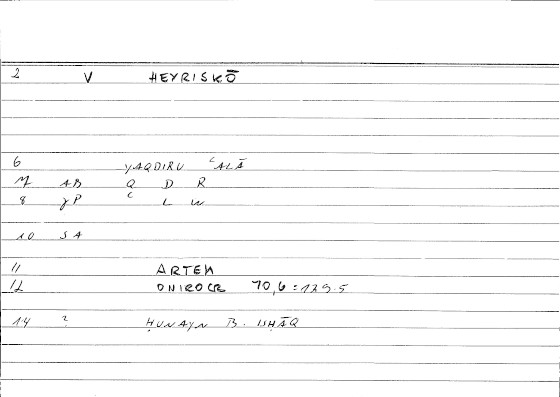 2 V HEYRISKŌ
6 YAQDIRU ʿALĀ
7 AB Q D R
8 γP ʿ L W
10 SA
11 ARTEM
12 ONIROCR 70,6 : 129.5
14 ? ḤUNAYN B. ISḤĀQ